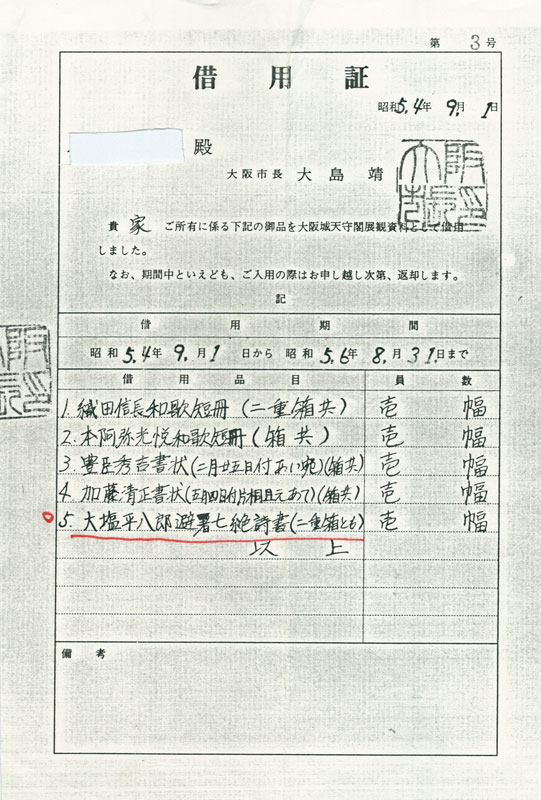 第 3 号
借用証
昭和 5.4年 9.月 1日
殿
大阪市長 大島靖
貴 家 ご所有に係る下記の御品を大阪城天守閣展観資料として借用
しました。
なお、期間中といえども、ご入用の際はお申し越し次第、返却します。
記
借用期間
昭和 5.4年 9.月 1 日から 昭和 5.6年 8.月 31日まで
借用品目 員数
1. 織田信長和歌短冊(二重箱共) 壱 幅
2. 本阿弥光悦和歌短冊(箱共) 壱 幅
3. 豊臣秀吉書状(二月廿五日付あい宛)(箱共) 壱 幅
4. 加藤清正書状(五月四日付片桐且元あて)(箱共) 壱 幅
5. 大塩平八郎避暑七絶詩書(二重箱とも) 壱 幅
以上
備考